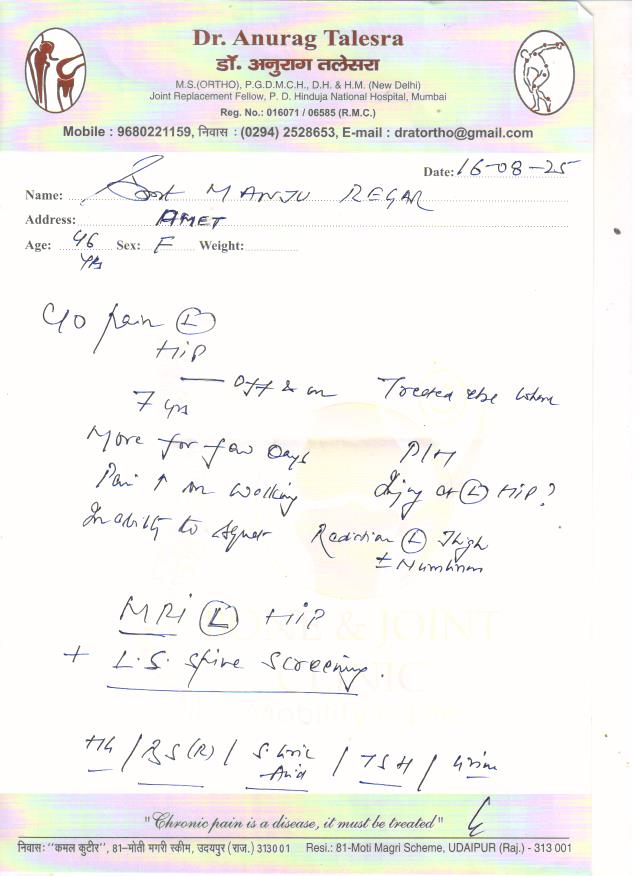 Dr. Anurag Talesra
डॉ. अनुराग तलेसरा
M.S.(ORTHO), P.G.D.M.C.H., D.H. & H.M. (New Delhi)
Joint Replacement Fellow, P. D. Hinduja National Hospital, Mumbai
Reg. No.: 016071 / 06585 (R.M.C.)
Mobile : 9680221159, निवास : (0294) 2528653, E-mail : dratortho@gmail.com
Date: 16-08-25
Name: MANJU REGAR
Address: AMET
Age: 46 yrs Sex: F Weight:
C/O Pain Ⓛ
HiP
7 yrs — Off & on Treated else where
More for few Days P/H
Pain ↑ on walking Injury at Ⓛ HiP?
Inability to squat Radiation Ⓛ Thigh
± Numbness
MRi Ⓛ HiP
+ L.S. Spine Screening.
BONE & JOINT
CLINIC
Hb / BS(R) / S. Uric Acid / TSH / Urine
"Chronic pain is a disease, it must be treated"
निवास: "कमल कुटीर", 81-मोती मगरी स्कीम, उदयपुर (राज.) 313001 Resi.: 81-Moti Magri Scheme, UDAIPUR (Raj.) - 313 001